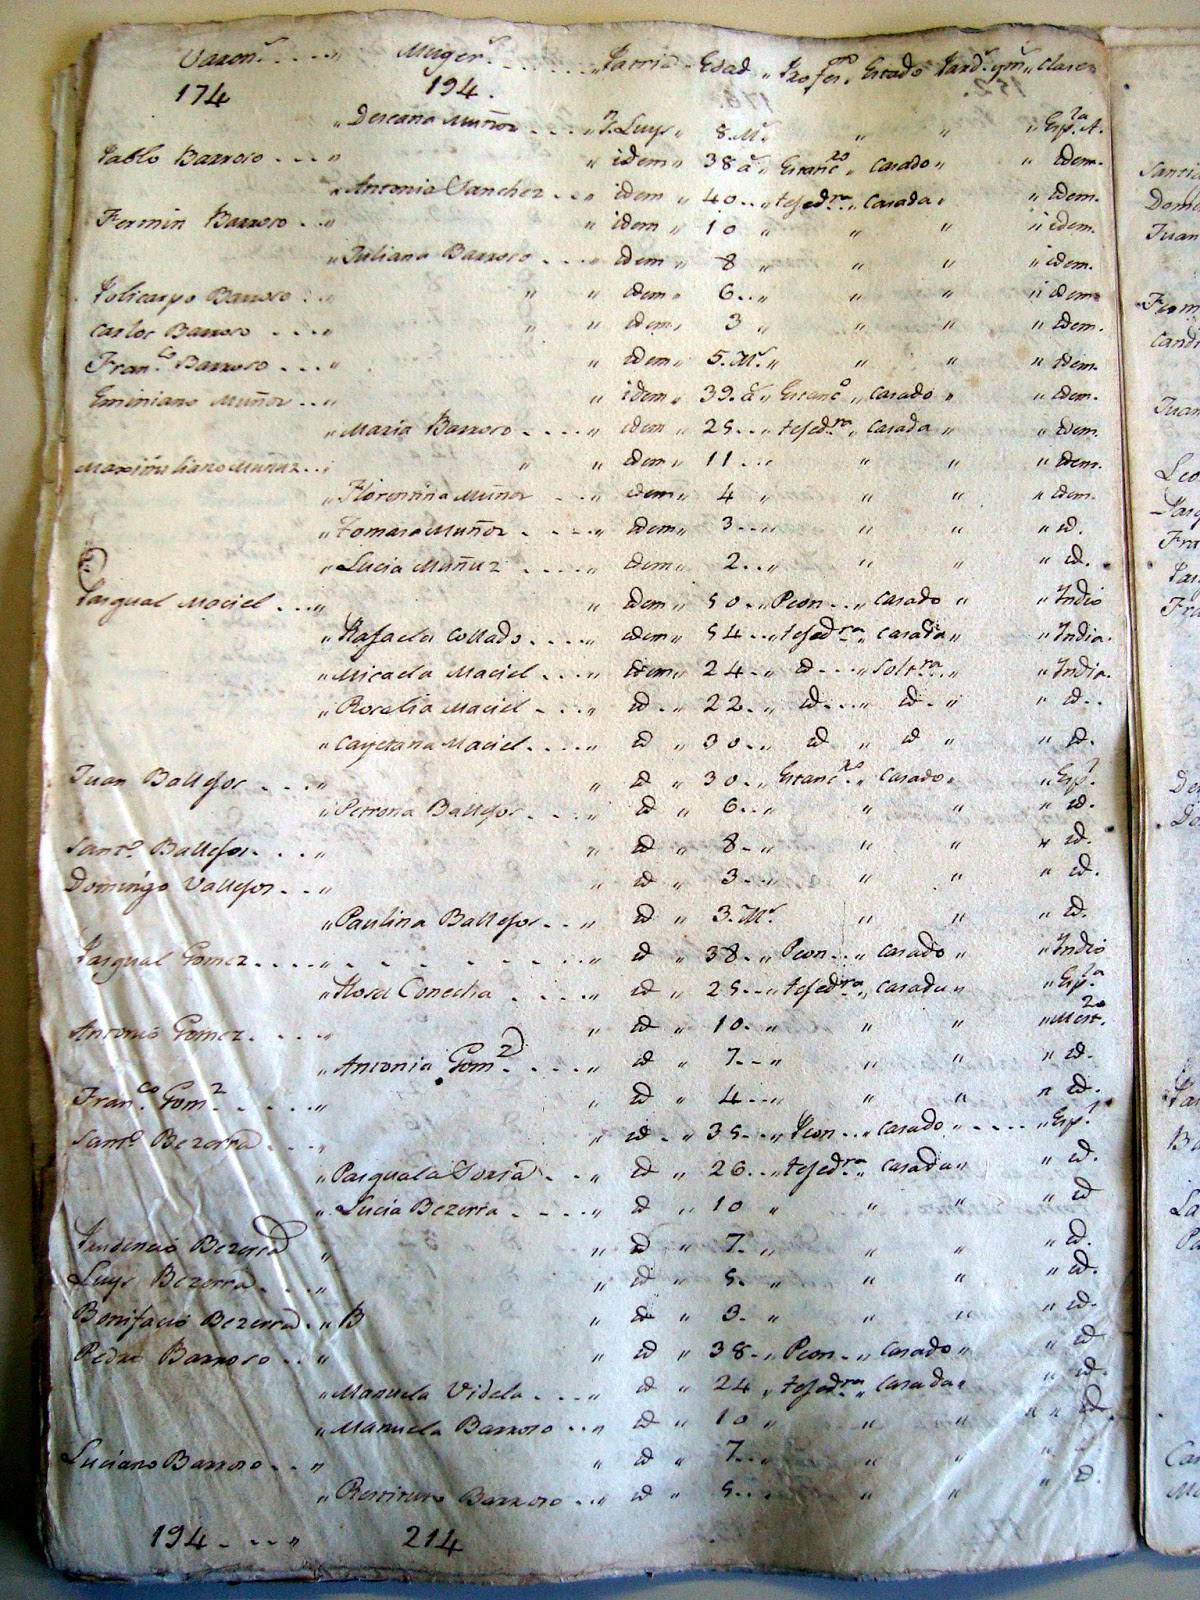 Varon.s .... " Muger.s ...... " Patria - Edad " Profes.on " Estado " Pard.s y m.s " Clases
174 194.
" Deseana Muñoz .... " S. Luys " 8. M.s " " " Esp.la A.
Pablo Barroso .... " " idem " 38 a.s " Estanc.ro " Casado " " idem.
" Antonia Sanchez ... " idem " 40 .. " tejed.ra " Casada " " idem.
Fermin Barroso .. " " idem " 10 " " " " idem.
" Juliana Barroso .... " idem " 8 " " " " idem.
Policarpo Barroso .. " " " idem " 6 .. " " " " idem
Carlos Barroso .... " " " idem " 3 " " " " idem.
Fran.co Barroso .... " " idem " 5. M.s " " " " idem.
Eminiano Muñoz ... " " idem " 39. a.s " Estanc.o " Casado " " idem.
" Maria Barroso ..... " idem " 25 .. " tejed.ra " Casada " " idem.
Maximiliano Muñoz .. " " " idem " 11 ... " " " " idem.
" Florentina Muñoz .... " idem " 4 " " " " idem.
" Tomasa Muñoz ..... " idem " 3 ... " " " " id.
" Lucia Muñuz ..... " idem " 2 .. " " " " id.
Pasqual Maciel .... " " idem " 50 .. " Peon ... " Casado " " Indio
" Rafaela Collado ..... " idem " 54 ... " tejed.ra " Casada " " India.
" Micaela Maciel .... " idem " 24 .. " id .... " Solt.ra " " India.
" Rosalia Maciel .... " id .. " 22 .. " id .... " id .. " " id ..
" Cayetana Maciel ..... " id " 30 .. " id " id " " id.
Juan Ballejos .... " " id " 30 .. " Estanc.ro " Casado " " Esp.l
" Petrona Ballejos .... " id " 6 ... " " " " id.
Sant.o Ballejos .... " " id " 8 .. " " " " id.
Domingo Vallejos ... " " id " 3 ... " " " " id.
" Paulina Ballejos .... " id " 3. M.s " " " id.
Pasqual Gomez ..... " - - - - - - .. " id " 38 .. " Peon ... " Casado " " Indio
" Rosa Conecha ..... " id " 25 ... " tejed.ra " Casada " " Esp.la
Antonio Gomez .... " " id " 10 .. " " " " Mest.zo
" Antonia Gom.z ..... " id " 7 ... " " " " id.
Fran.co Gom.z ...... " " id " 4 ... " " " " id.
Sant.o Bezerra .... " " id .. " 35 ... " Peon ... " Casado " ..... " Esp.l
" Pasquala Soria .... " id " 26 ... " tejed.ra " Casada " " id.
" Lucia Bezerra ..... " id " 10 " " " " id
Prudencio Bezerra " " id " 7 .. " " " " id.
Luys Bezerra .... " " id " 5 .. " " " " id.
Bonifacio Bezerra .. " B " id " 3 .. " " " " id.
Pedro Barroso ... " " id " 38 .. " Peon .. " Casado " " id
" Manuela Videla .... " id " 24 " tejed.ra " Casada " " id.
" Manuela Barroso ... " id " 10 " " " " " id.
Luciano Barroso ... " " id " 7 ... " " " "
" Restituta Barroso ... " id " 5 ... " " " " id.
194 .... " 214